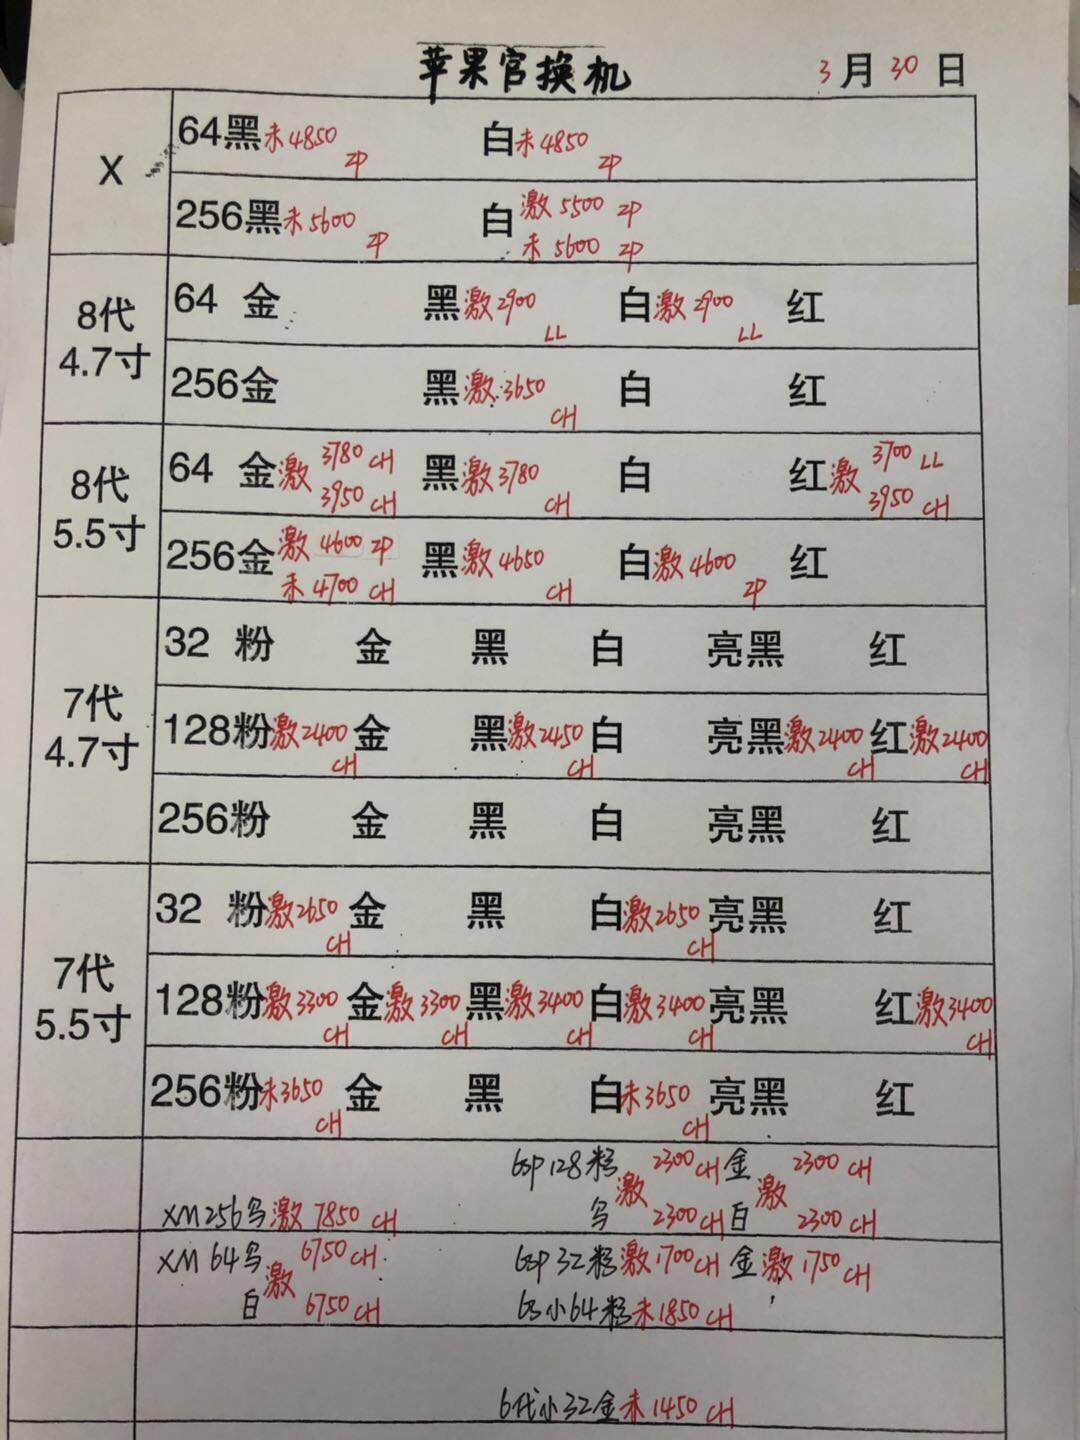 苹果官换机 3月30日
X
64黑未4850 ZP 白未4850 ZP
256黑未5600 ZP 白激5500 ZP
未5600 ZP
8代
4.7寸
64 金 黑激2900 LL 白激2900 LL 红
256金 黑激3650 CH 白 红
8代
5.5寸
64 金激3780 CH 3950 CH 黑激3780 CH 白 红激3700 LL 3950 CH
256金激4600 ZP 未4700 CH 黑激4650 CH 白激4600 ZP 红
7代
4.7寸
32 粉 金 黑 白 亮黑 红
128粉激2400 CH 金 黑激2450 CH 白 亮黑激2400 CH 红激2400 CH
256粉 金 黑 白 亮黑 红
7代
5.5寸
32 粉激2650 CH 金 黑 白激2650 CH 亮黑 红
128粉激3300 CH 金激3300 CH 黑激3400 CH 白激3400 CH 亮黑 红激3400 CH
256粉未3650 CH 金 黑 白未3650 CH 亮黑 红
6sp 128粉激2300 CH 金激2300 CH
XM 256乌激7850 CH 乌2300 CH 白2300 CH
XM 64乌激6750 CH 6sp 32粉激1700 CH 金激1750 CH
白6750 CH 6s小64粉未1850 CH
6代小32金未1450 CH